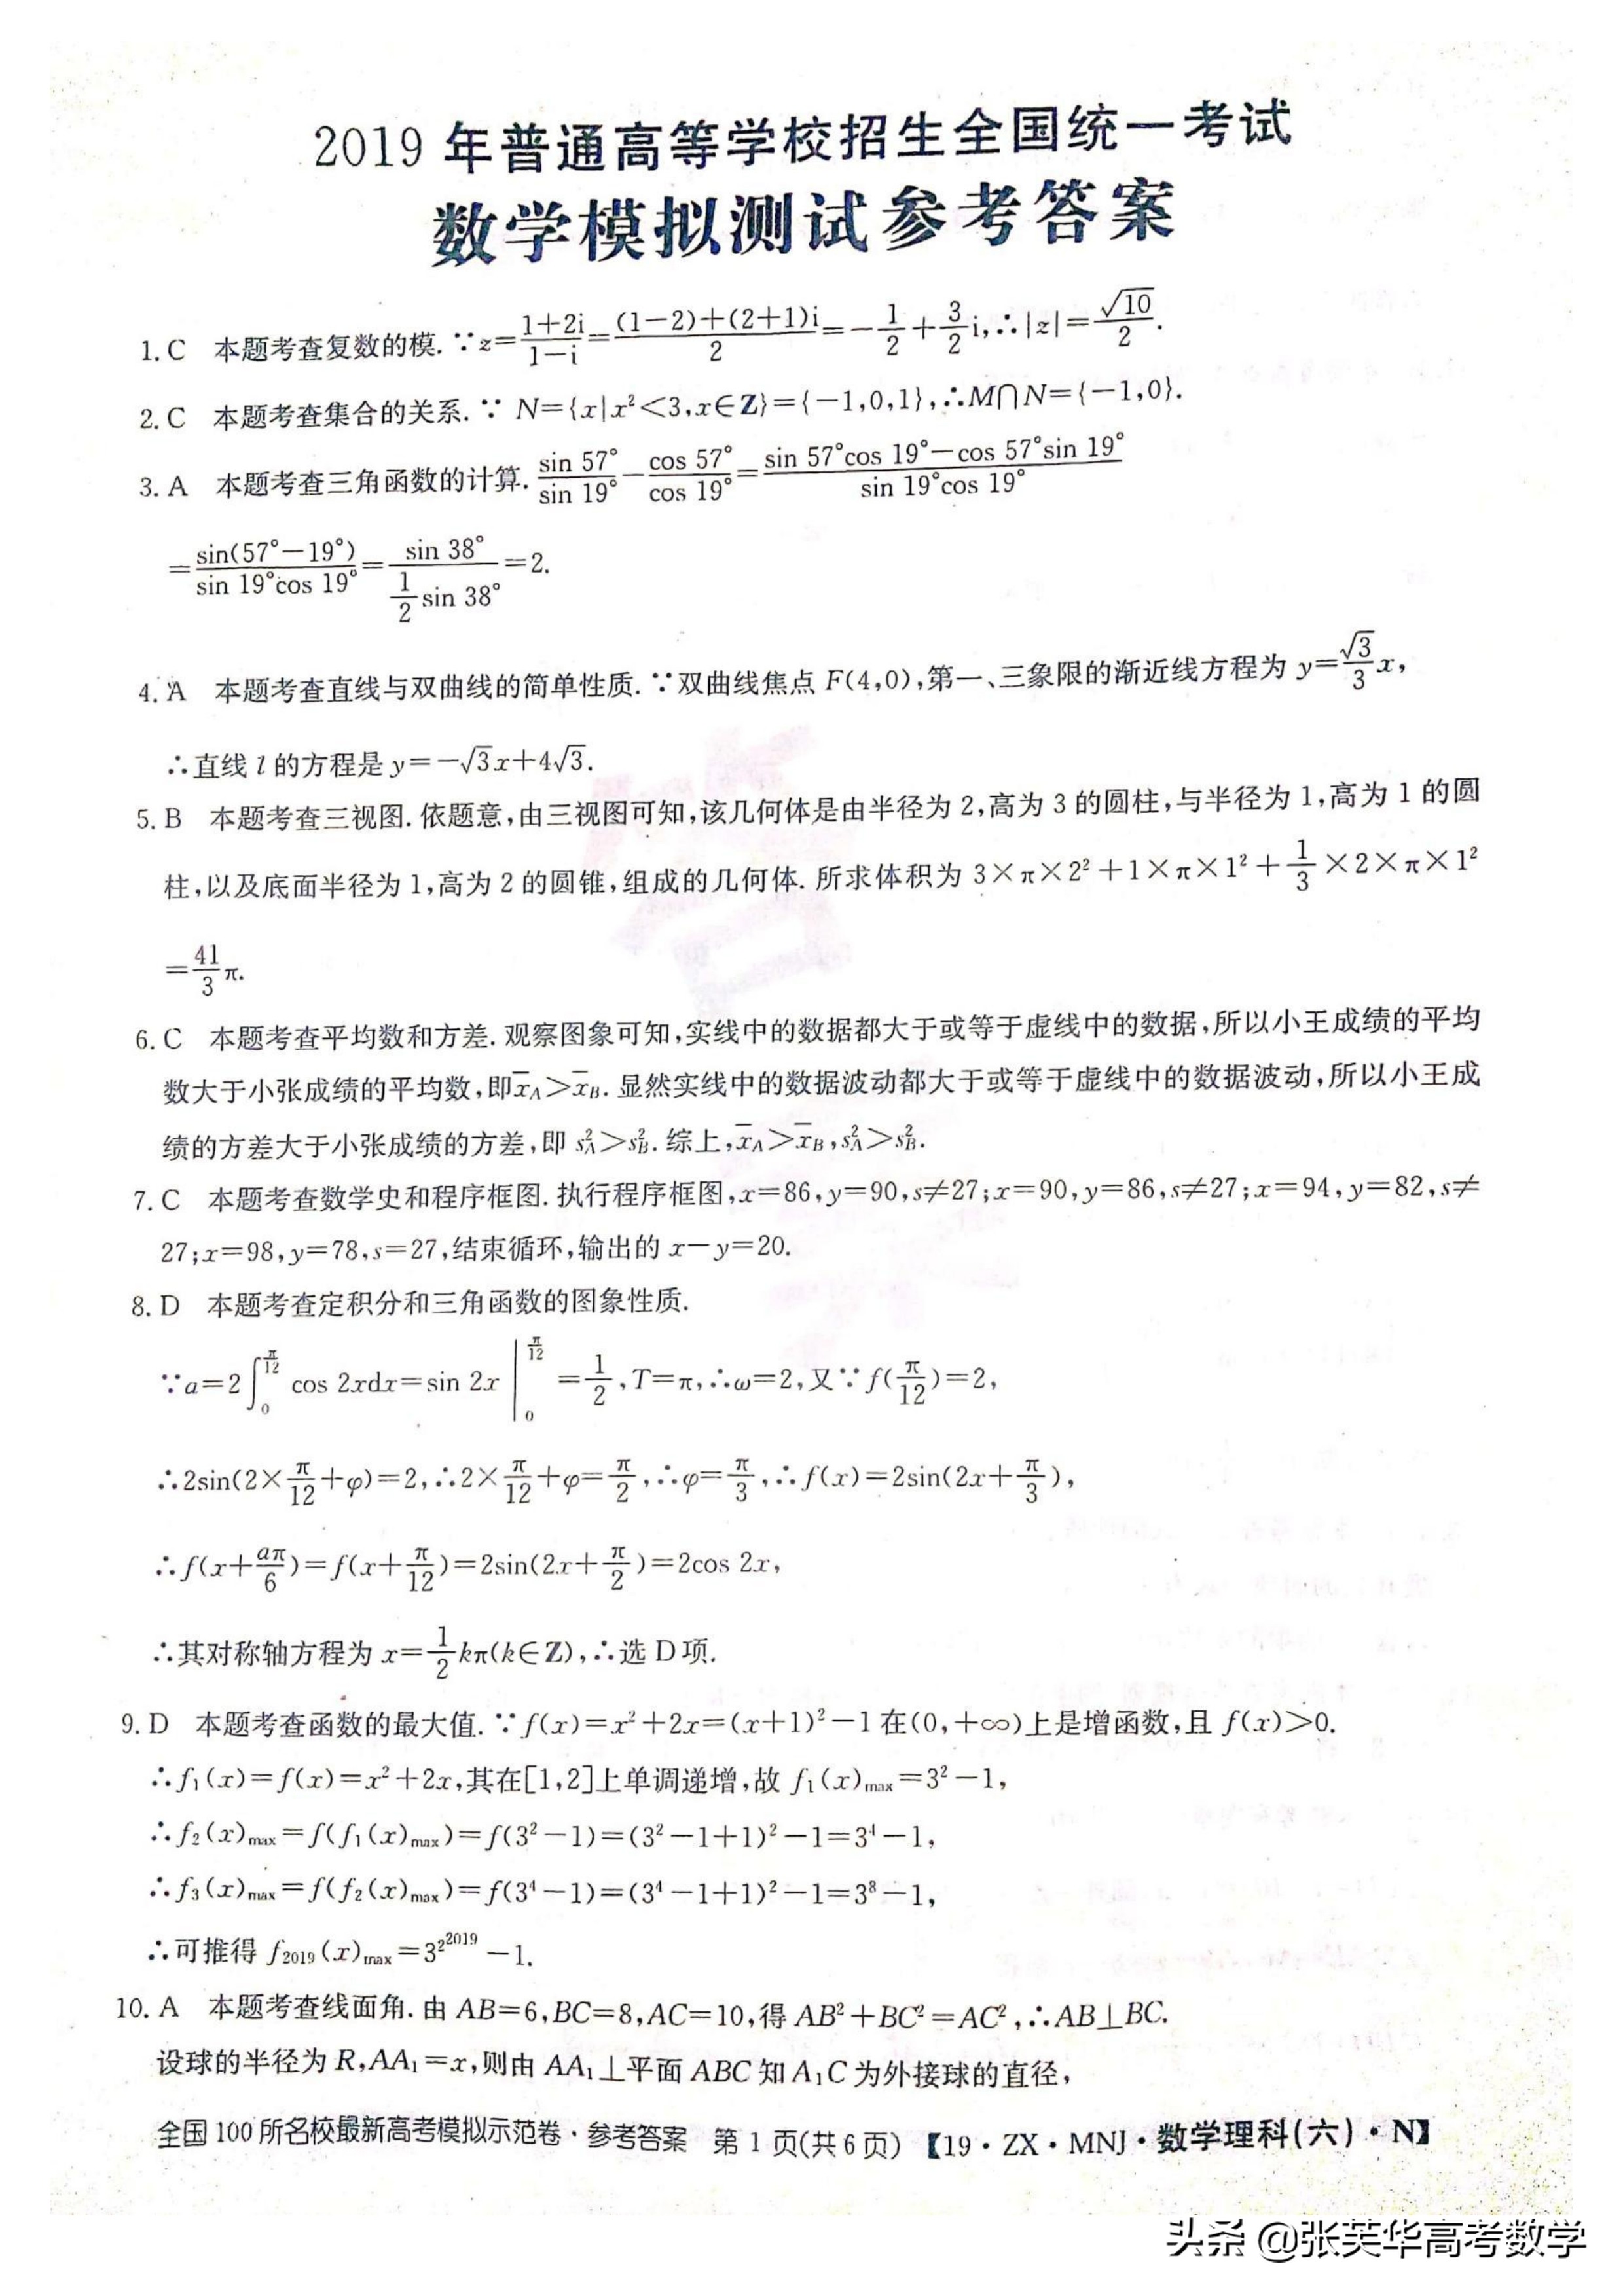 2019 年普通高等学校招生全国统一考试
数学模拟测试参考答案
1. C 本题考查复数的模. ∵z=\frac{1+2i}{1-i}=\frac{(1-2)+(2+1)i}{2}=-\frac{1}{2}+\frac{3}{2}i,∴|z|=\frac{\sqrt{10}}{2}.
2. C 本题考查集合的关系. ∵ N={x|x²<3,x∈Z}={-1,0,1},∴M∩N={-1,0}.
3. A 本题考查三角函数的计算. \frac{sin 57°}{sin 19°}-\frac{cos 57°}{cos 19°}=\frac{sin 57°cos 19°-cos 57°sin 19°}{sin 19°cos 19°}
=\frac{sin(57°-19°)}{sin 19°cos 19°}=\frac{sin 38°}{\frac{1}{2}sin 38°}=2.
4. A 本题考查直线与双曲线的简单性质. ∵双曲线焦点 F(4,0),第一、三象限的渐近线方程为 y=\frac{\sqrt{3}}{3}x,
∴直线 l 的方程是 y=-√3x+4√3.
5. B 本题考查三视图. 依题意,由三视图可知,该几何体是由半径为 2,高为 3 的圆柱,与半径为 1,高为 1 的圆
柱,以及底面半径为 1,高为 2 的圆锥,组成的几何体. 所求体积为 3×π×2²+1×π×1²+\frac{1}{3}×2×π×1²
=\frac{41}{3}π.
6. C 本题考查平均数和方差. 观察图象可知,实线中的数据都大于或等于虚线中的数据,所以小王成绩的平均
数大于小张成绩的平均数,即\overline{x}_A>\overline{x}_B. 显然实线中的数据波动都大于或等于虚线中的数据波动,所以小王成
绩的方差大于小张成绩的方差,即 s_A^2>s_B^2. 综上,\overline{x}_A>\overline{x}_B,s_A^2>s_B^2.
7. C 本题考查数学史和程序框图. 执行程序框图,x=86,y=90,s≠27;x=90,y=86,s≠27;x=94,y=82,s≠
27;x=98,y=78,s=27,结束循环,输出的 x-y=20.
8. D 本题考查定积分和三角函数的图象性质.
∵a=2\int_0^{\frac{π}{12}} cos 2xdx=sin 2x|_0^{\frac{π}{12}}=\frac{1}{2},T=π,∴ω=2,又∵f(\frac{π}{12})=2,
∴2sin(2×\frac{π}{12}+φ)=2,∴2×\frac{π}{12}+φ=\frac{π}{2},∴φ=\frac{π}{3},∴f(x)=2sin(2x+\frac{π}{3}),
∴f(x+\frac{aπ}{6})=f(x+\frac{π}{12})=2sin(2x+\frac{π}{2})=2cos 2x,
∴其对称轴方程为 x=\frac{1}{2}kπ(k∈Z),∴选 D 项.
9. D 本题考查函数的最大值. ∵f(x)=x²+2x=(x+1)²-1 在(0,+∞)上是增函数,且 f(x)>0.
∴f₁(x)=f(x)=x²+2x,其在[1,2]上单调递增,故 f₁(x)_{max}=3²-1,
∴f₂(x)_{max}=f(f₁(x)_{max})=f(3²-1)=(3²-1+1)²-1=3⁴-1,
∴f₃(x)_{max}=f(f₂(x)_{max})=f(3⁴-1)=(3⁴-1+1)²-1=3⁸-1,
∴可推得 f_{2019}(x)_{max}=3^{2^{2019}}-1.
10. A 本题考查线面角. 由 AB=6,BC=8,AC=10,得 AB²+BC²=AC²,∴AB⊥BC.
设球的半径为 R,AA₁=x,则由 AA₁⊥平面 ABC 知 A₁C 为外接球的直径,
全国 100 所名校最新高考模拟示范卷·参考答案 第 1 页(共 6 页) 【19·ZX·MNJ·数学理科(六)·N】
头条 @张芙华高考数学